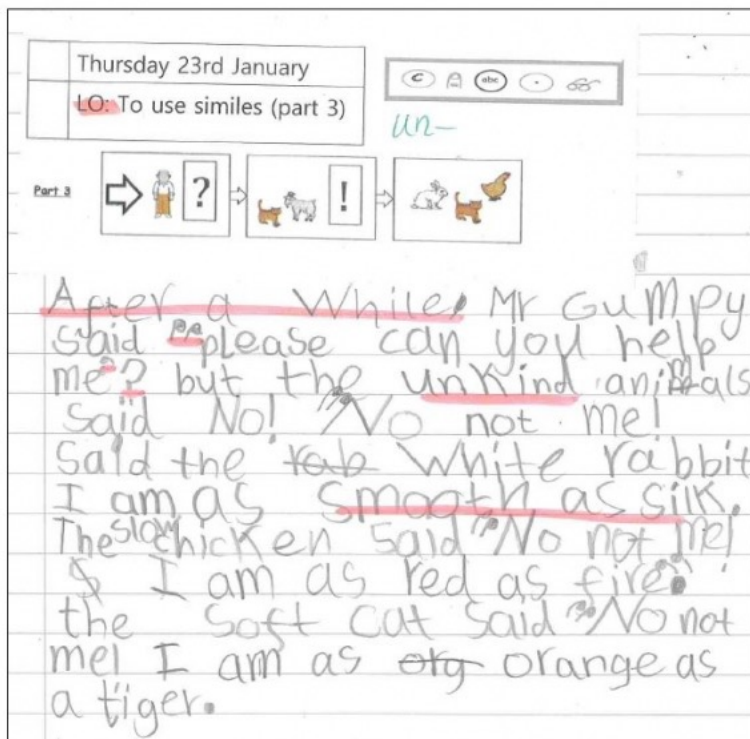 Thursday 23rd January
LO: To use similes (part 3)
c abc .
un-
Part 3
? !
After a While, Mr Gumpy
said "please can you help
me"? but the unkind animals
said No! "No not me!
Said the rab White rabbit
I am as smooth as silk.
The slow chicken said "No not me!
I am as red as fire".
the Soft cat said "No not
me! I am as org orange as
a tiger.